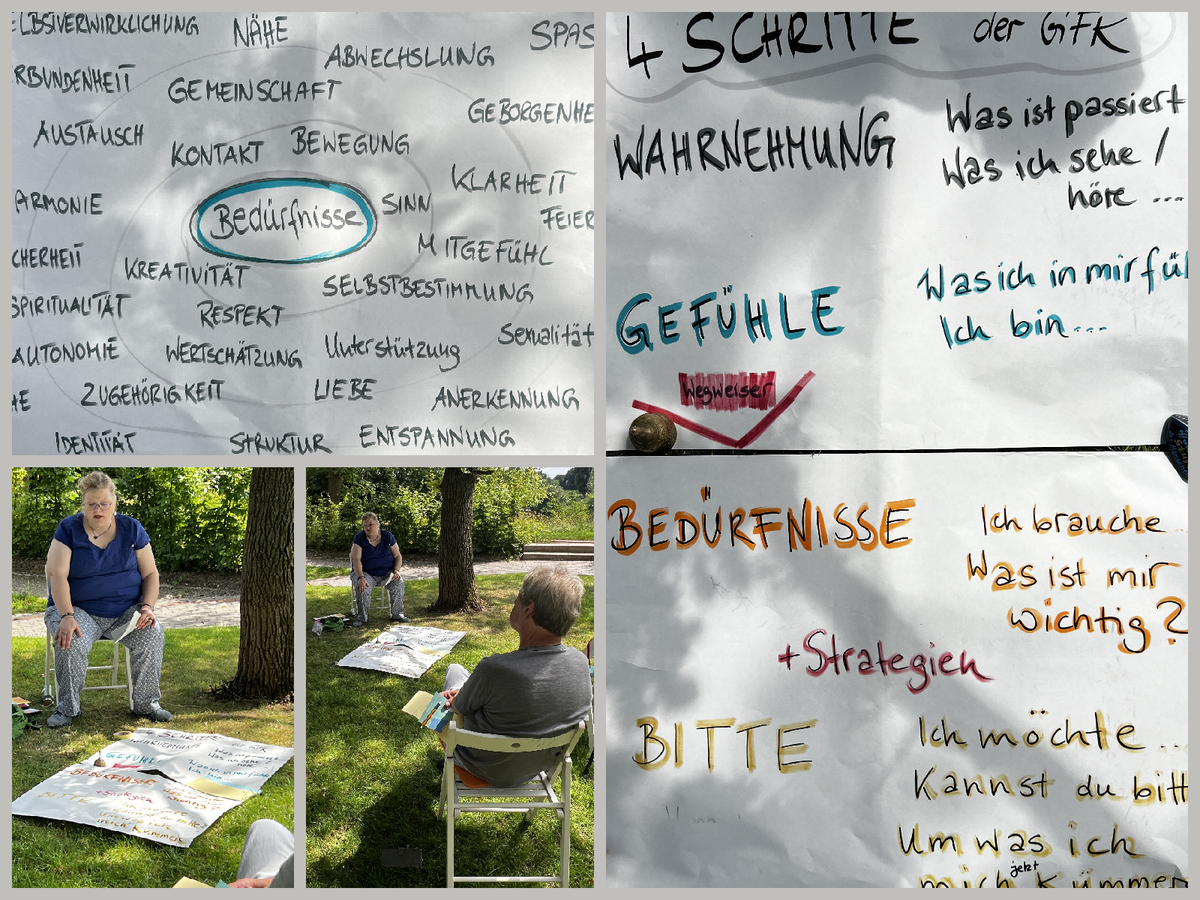 ELBSTVERWIRKLICHUNG
NÄHE
ABWECHSLUNG
SPAS
RBUNDENHEIT
GEMEINSCHAFT
GEBORGENHE
AUSTAUSCH
KONTAKT
BEWEGUNG
KLARHEIT
ARMONIE
Bedürfnisse
SINN
FEIER
CHERHEIT
KREATIVITÄT
MITGEFÜHL
SELBSTBESTIMMUNG
SPIRITUALITÄT
RESPEKT
Sexualität
AUTONOMIE
WERTSCHÄTZUNG
Unterstützung
HE
ZUGEHÖRIGKEIT
LIEBE
ANERKENNUNG
IDENTITÄT
STRUKTUR
ENTSPANNUNG
4 SCHRITTE der GFK
WAHRNEHMUNG
Was ist passiert
Was ich sehe /
höre ...
GEFÜHLE
Was ich in mir fü
Ich bin ...
Wegweiser
BEDÜRFNISSE
Ich brauche
Was ist mir
wichtig?
+Strategien
BITTE
Ich möchte ...
Kannst du bitt
Um was ich
mich jetzt kümmer
4 SCHRITTE der GFK
WAHRNEHMUNG
GEFÜHLE
BEDÜRFNISSE
+Strategien
BITTE